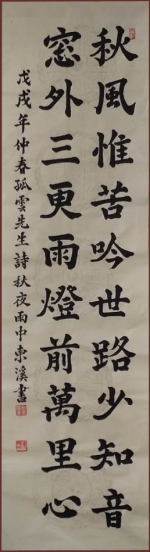 秋風惟苦吟世路少知音
窓外三更雨燈前萬里心
戊戌年仲春孤雲先生詩秋夜雨中東溪書